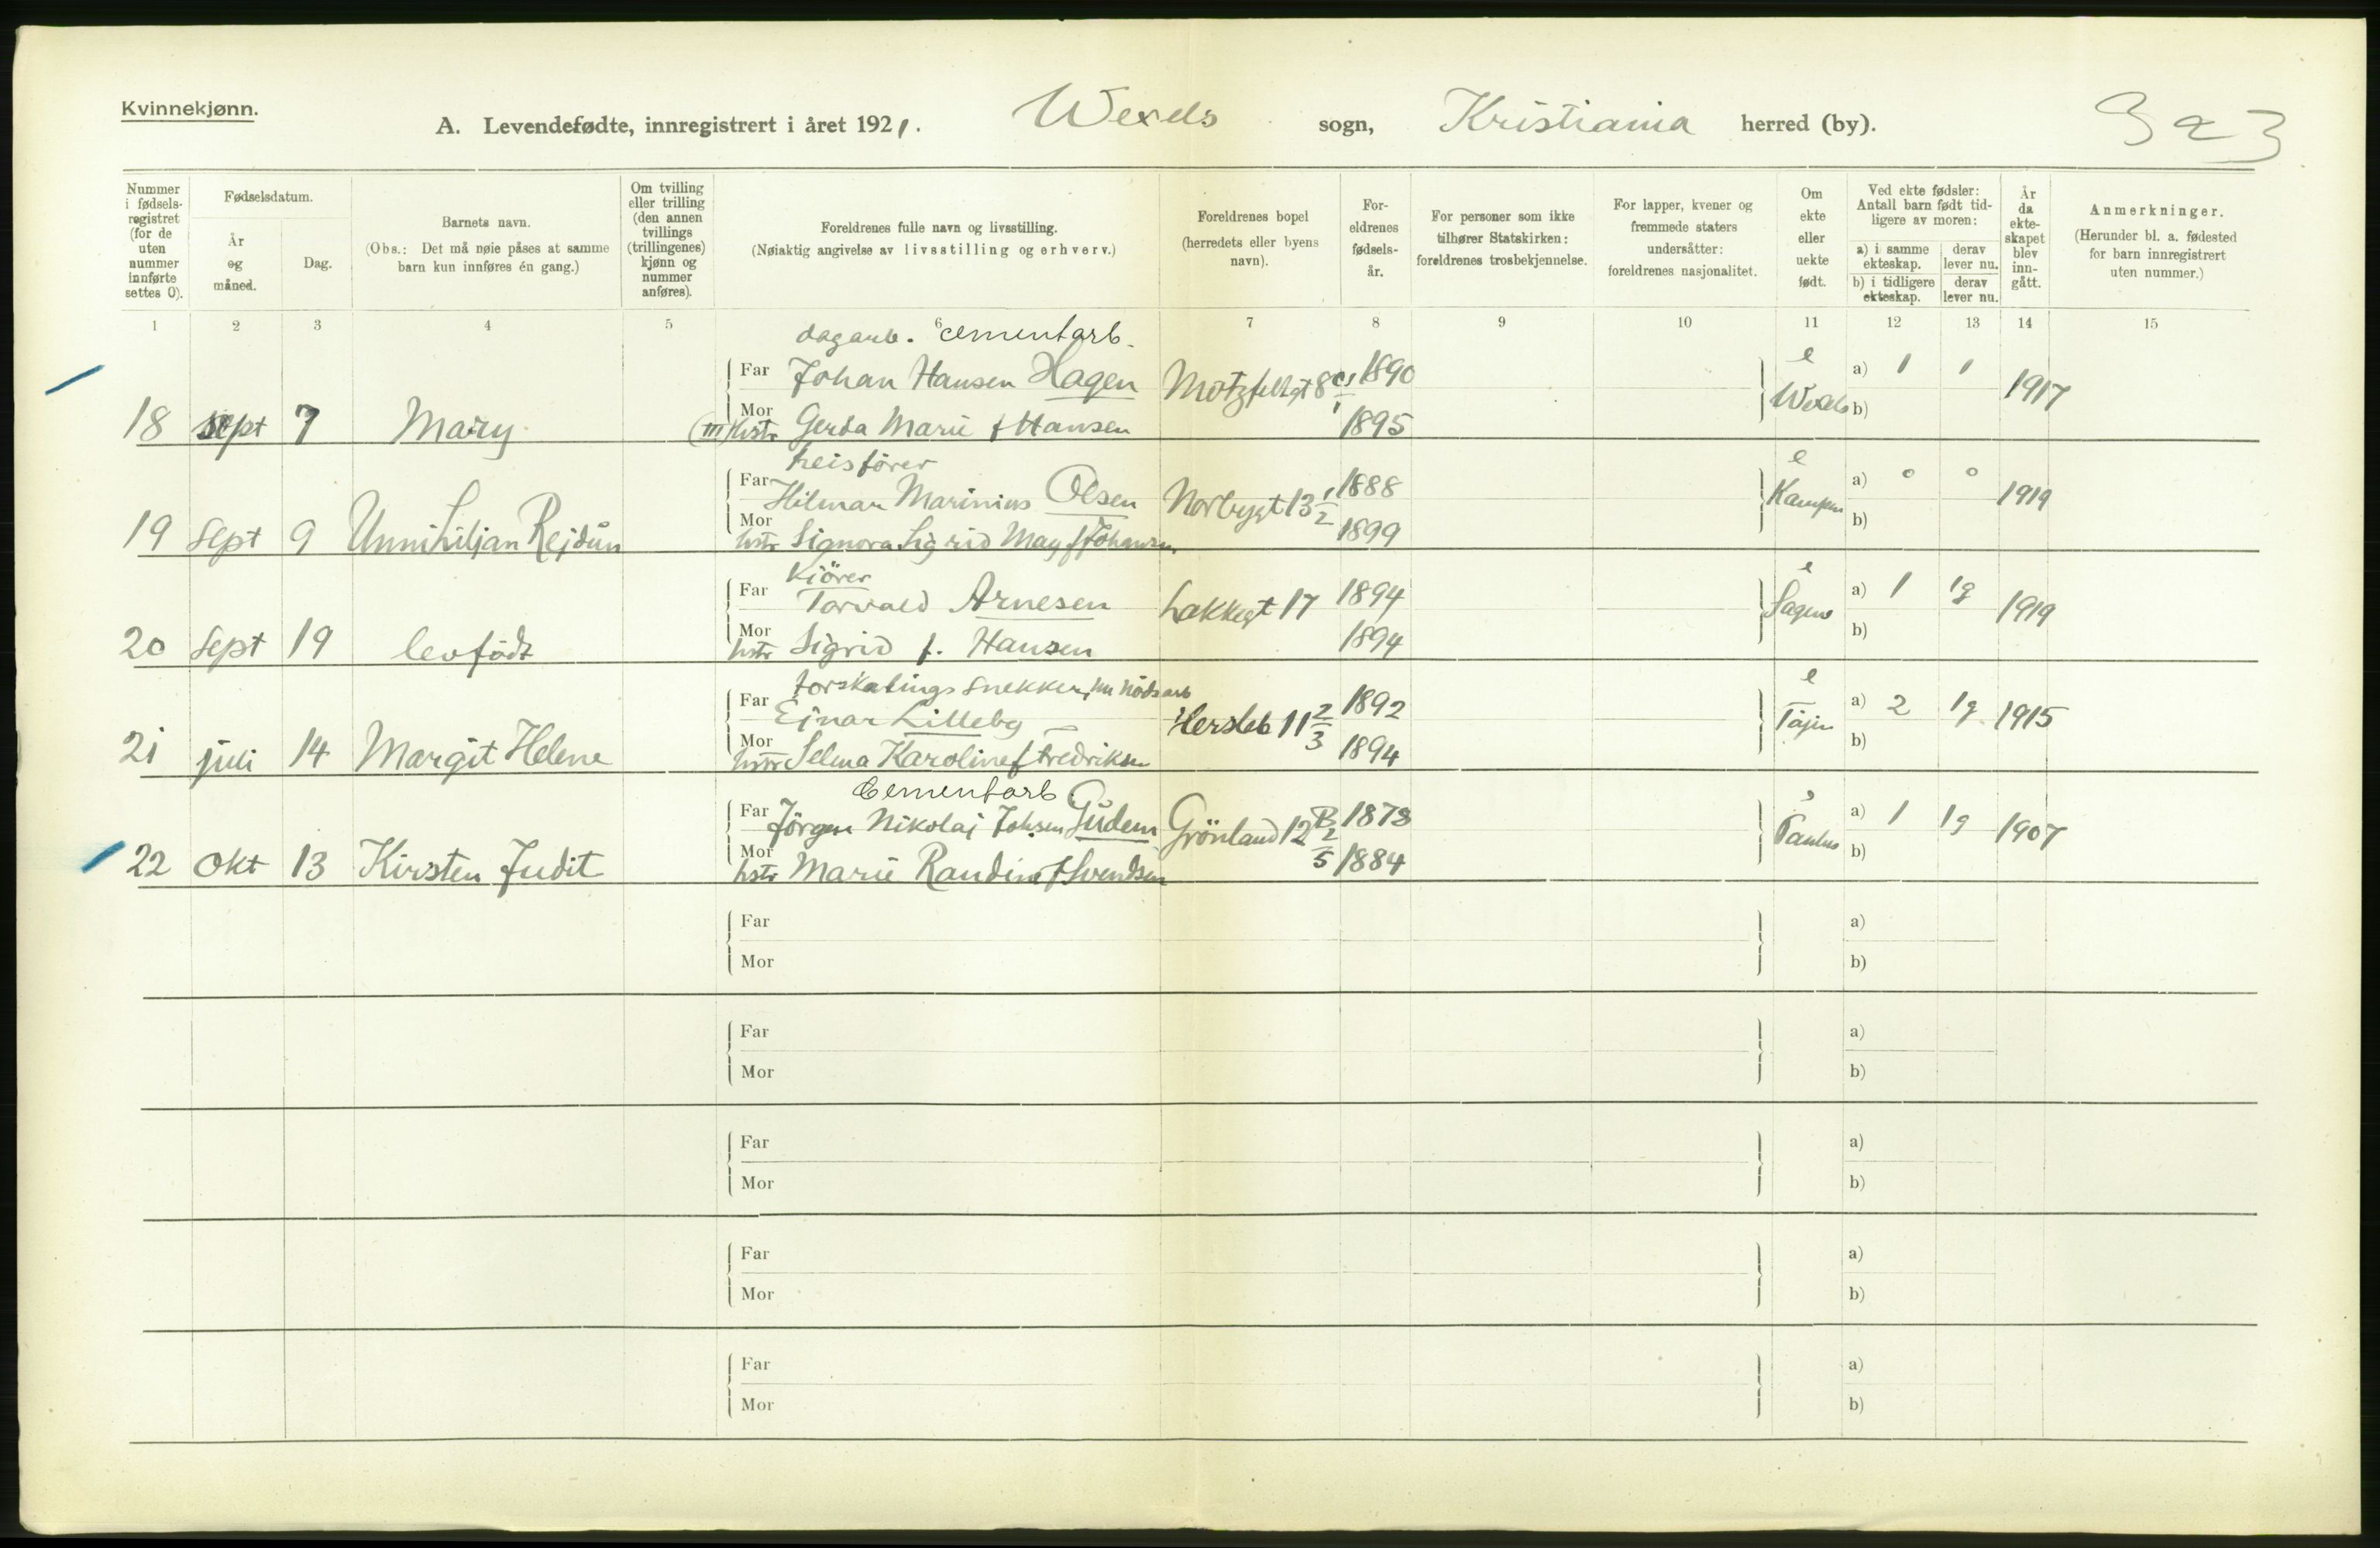 Kvinnekjønn.
A. Levendefødte, innregistrert i året 1921. Wexels sogn, Kristiania herred (by). 323
Nummer i fødsels-registret (for de uten nummer innførte settes 0).
Fødselsdatum.
År og måned.
Dag.
Barnets navn.
(Obs.: Det må nøie påses at samme barn kun innføres én gang.)
Om tvilling eller trilling (den annen tvillings (trillingenes) kjønn og nummer anføres).
Foreldrenes fulle navn og livsstilling.
(Nøiaktig angivelse av livsstilling og erhverv.)
Foreldrenes bopel (herredets eller byens navn).
For-eldrenes fødsels-år.
For personer som ikke tilhører Statskirken: foreldrenes trosbekjennelse.
For lapper, kvener og fremmede staters undersåtter: foreldrenes nasjonalitet.
Om ekte eller uekte født.
Ved ekte fødsler: Antall barn født tid-ligere av moren:
a) i samme ekteskap.
derav lever nu.
b) i tidligere ekteskap.
derav lever nu.
År da ekte-skapet blev inn-gått.
Anmerkninger.
(Herunder bl. a. fødested for barn innregistrert uten nummer.)
1 2 3 4 5 6 7 8 9 10 11 12 13 14 15
dagarb. cementarb.
Far Johan Hansen Hagen Motzfeldtgt 8 1890 e a) 1 1
18 sept 7 Mary (III) Mor hstr Gerda Marie f Hansen 1895 Wexels b) 1917
heisfører
Far Hilmar Marinius Olsen Norbygt 13 1/2 1888 e a) 0 0
19 Sept 9 Unni Liljan Rejdun Mor hstr Signora Sigrid May f Johansen 1899 Kampen b) 1919
Kjörer
Far Torvald Arnesen Lakkegt 17 1894 e a) 1 1g
20 Sept 19 levfödt Mor hstr Sigrid f. Hansen 1894 Sagene b) 1919
forskalings snekker, nu nödsarb
Far Ejnar Lilleby Hersleb 11 2/3 1892 e a) 2 1g
21 juli 14 Margit Helene Mor hstr Selma Karoline f Fredriksen 1894 Tøjen b) 1915
Cementarb.
Far Jörgen Nikolaj Johsen Gudem Grönland 12 B 2/5 1878 a) 1 1g
22 Okt 13 Kirsten Judit Mor hstr Marie Randine f Svendsen 1884 Paulus b) 1907
Far a)
Mor b)
Far a)
Mor b)
Far a)
Mor b)
Far a)
Mor b)
Far a)
Mor b)